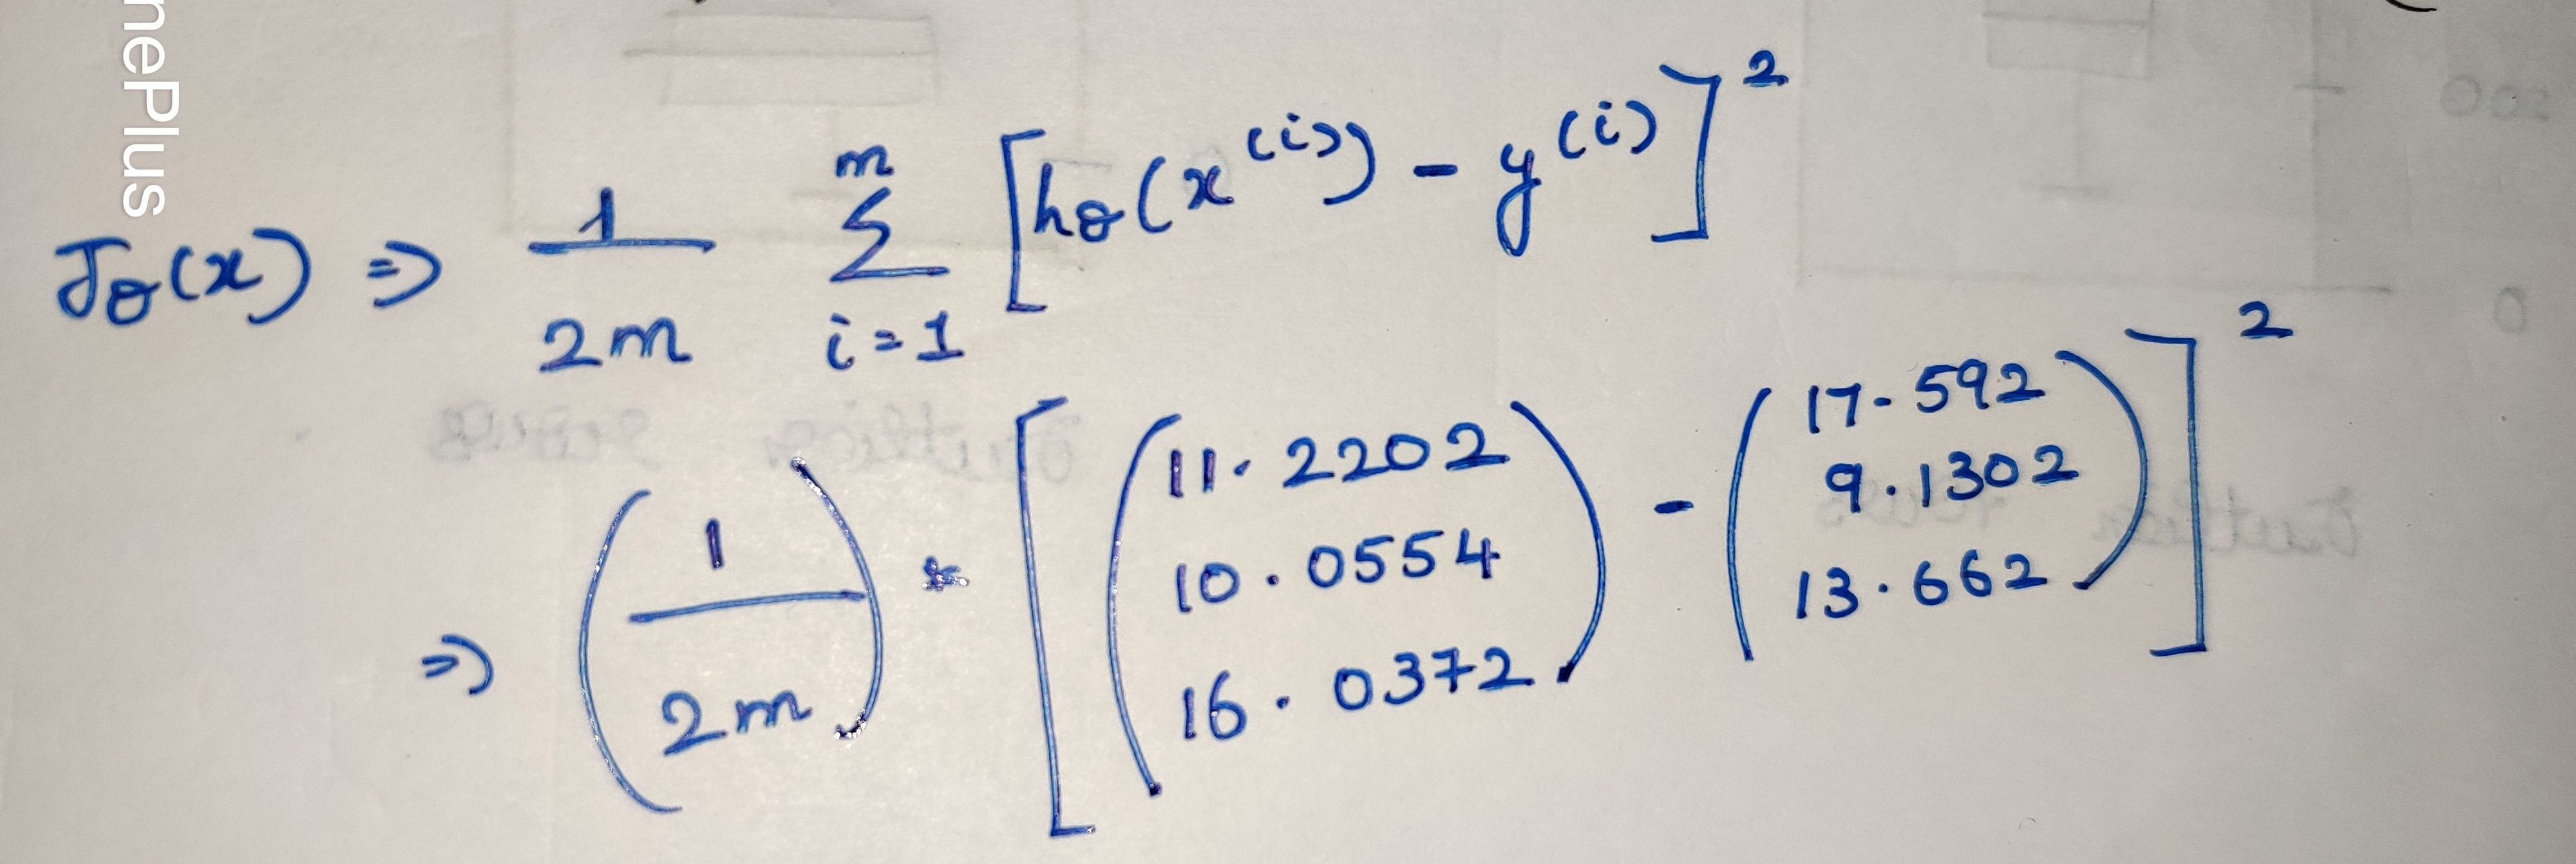 nePlus
J_θ(x) ⇒ 1/2m Σ_{i=1}^{m} [h_θ(x^(i)) - y^(i)]^2
⇒ (1/2m) * [(11.2202 10.0554 16.0372) - (17.592 9.1302 13.662)]^2
200
0